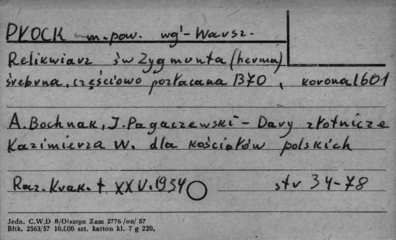 PŁOCK m.pow. wg'-Warsz.
Relikwiarz św Zygmunta (herma)
srebrna, częściowo pozłacana 1370, korona 1601
A. Bochnak, J. Pagaczewski - Dary złotnicze
Kazimierza W. dla kościołów polskich
Roz. Krak. t XXV. 1934 str 34-78
Jedn. C.W.D B/Olsztyn Zam 2776/on/57
Bltk. 2563/57 10.000 szt. karton kl. 7 g 220.